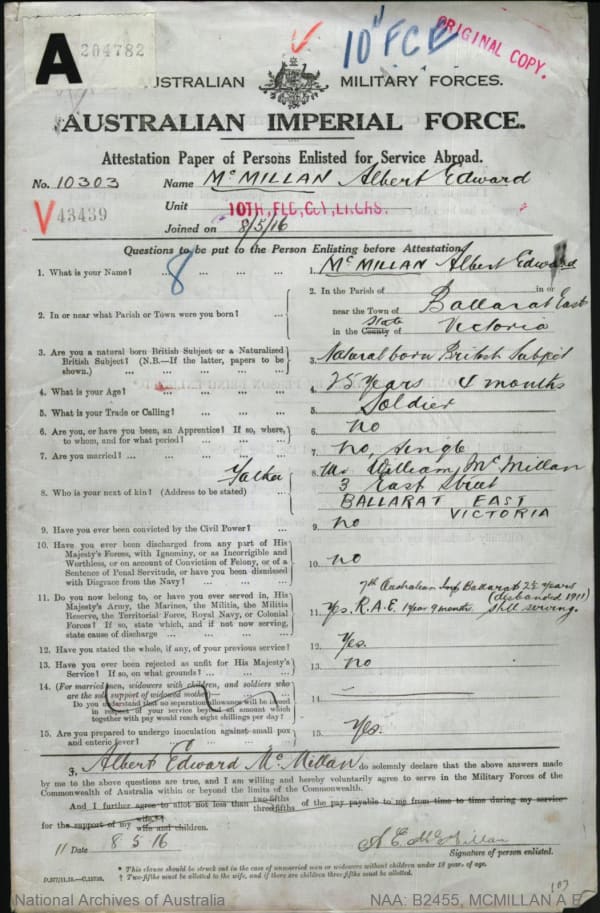 A 204782
10 FCE
ORIGINAL COPY.
AUSTRALIAN MILITARY FORCES.
AUSTRALIAN IMPERIAL FORCE.
Attestation Paper of Persons Enlisted for Service Abroad.
No. 10303 Name McMILLAN Albert Edward
V43439 Unit 10TH. FLD. COY. ENGRS.
Joined on 8/5/16
Questions to be put to the Person Enlisting before Attestation.
8
1. What is your Name? ... ... ... ... 1. McMILLAN Albert Edward
2. In or near what Parish or Town were you born? ... 2. In the Parish of in or
near the Town of Ballarat East
in the County of State Victoria
3. Are you a natural born British Subject or a Naturalized
British Subject? (N.B.—If the latter, papers to be
shown.) ... ... ... ... 3. Natural born British Subject
4. What is your Age? ... ... ... 4. 25 Years 4 months
5. What is your Trade or Calling? ... ... ... 5. Soldier
6. Are you, or have you been, an Apprentice? If so, where,
to whom, and for what period? ... ... ... 6. no
7. Are you married? ... ... ... ... 7. no, single
8. Who is your next of kin? (Address to be stated) ... Father 8. Mr William McMillan
3 East Street
BALLARAT EAST
VICTORIA
9. Have you ever been convicted by the Civil Power? ... 9. no
10. Have you ever been discharged from any part of His
Majesty's Forces, with Ignominy, or as Incorrigible and
Worthless, or on account of Conviction of Felony, or of a
Sentence of Penal Servitude, or have you been dismissed
with Disgrace from the Navy? ... ... ... 10. no
11. Do you now belong to, or have you ever served in, His
Majesty's Army, the Marines, the Militia, the Militia
Reserve, the Territorial Force, Royal Navy, or Colonial
Forces? If so, state which, and if not now serving,
state cause of discharge ... ... ... 7th Australian Inf Ballarat 2½ Years
(disbanded 1911)
11. Yes, R.A.E. 1 Year 9 months. Still serving.
12. Have you stated the whole, if any, of your previous service? 12. Yes.
13. Have you ever been rejected as unfit for His Majesty's
Service? If so, on what grounds? ... ... ... 13. no
14. (For married men, widowers with children, and soldiers who
are the sole support of widowed mother)—
Do you understand that no separation allowance will be issued
in respect of your service beyond an amount which
together with pay would reach eight shillings per day? 14. —
15. Are you prepared to undergo inoculation against small pox
and enteric fever? ... ... ... ... 15. Yes.
I, Albert Edward McMillan do solemnly declare that the above answers made
by me to the above questions are true, and I am willing and hereby voluntarily agree to serve in the Military Forces of the
Commonwealth of Australia within or beyond the limits of the Commonwealth.
And I further agree to allot not less than two-fifths three-fifths of the pay payable to me from time to time during my service
for the support of my wife wife and children.
11 Date 8 5 16 A.E. McMillan
Signature of person enlisted.
* This clause should be struck out in the case of unmarried men or widowers without children under 18 years of age.
† Two-fifths must be allotted to the wife, and if there are children three-fifths must be allotted.
National Archives of Australia NAA: B2455, MCMILLAN A E